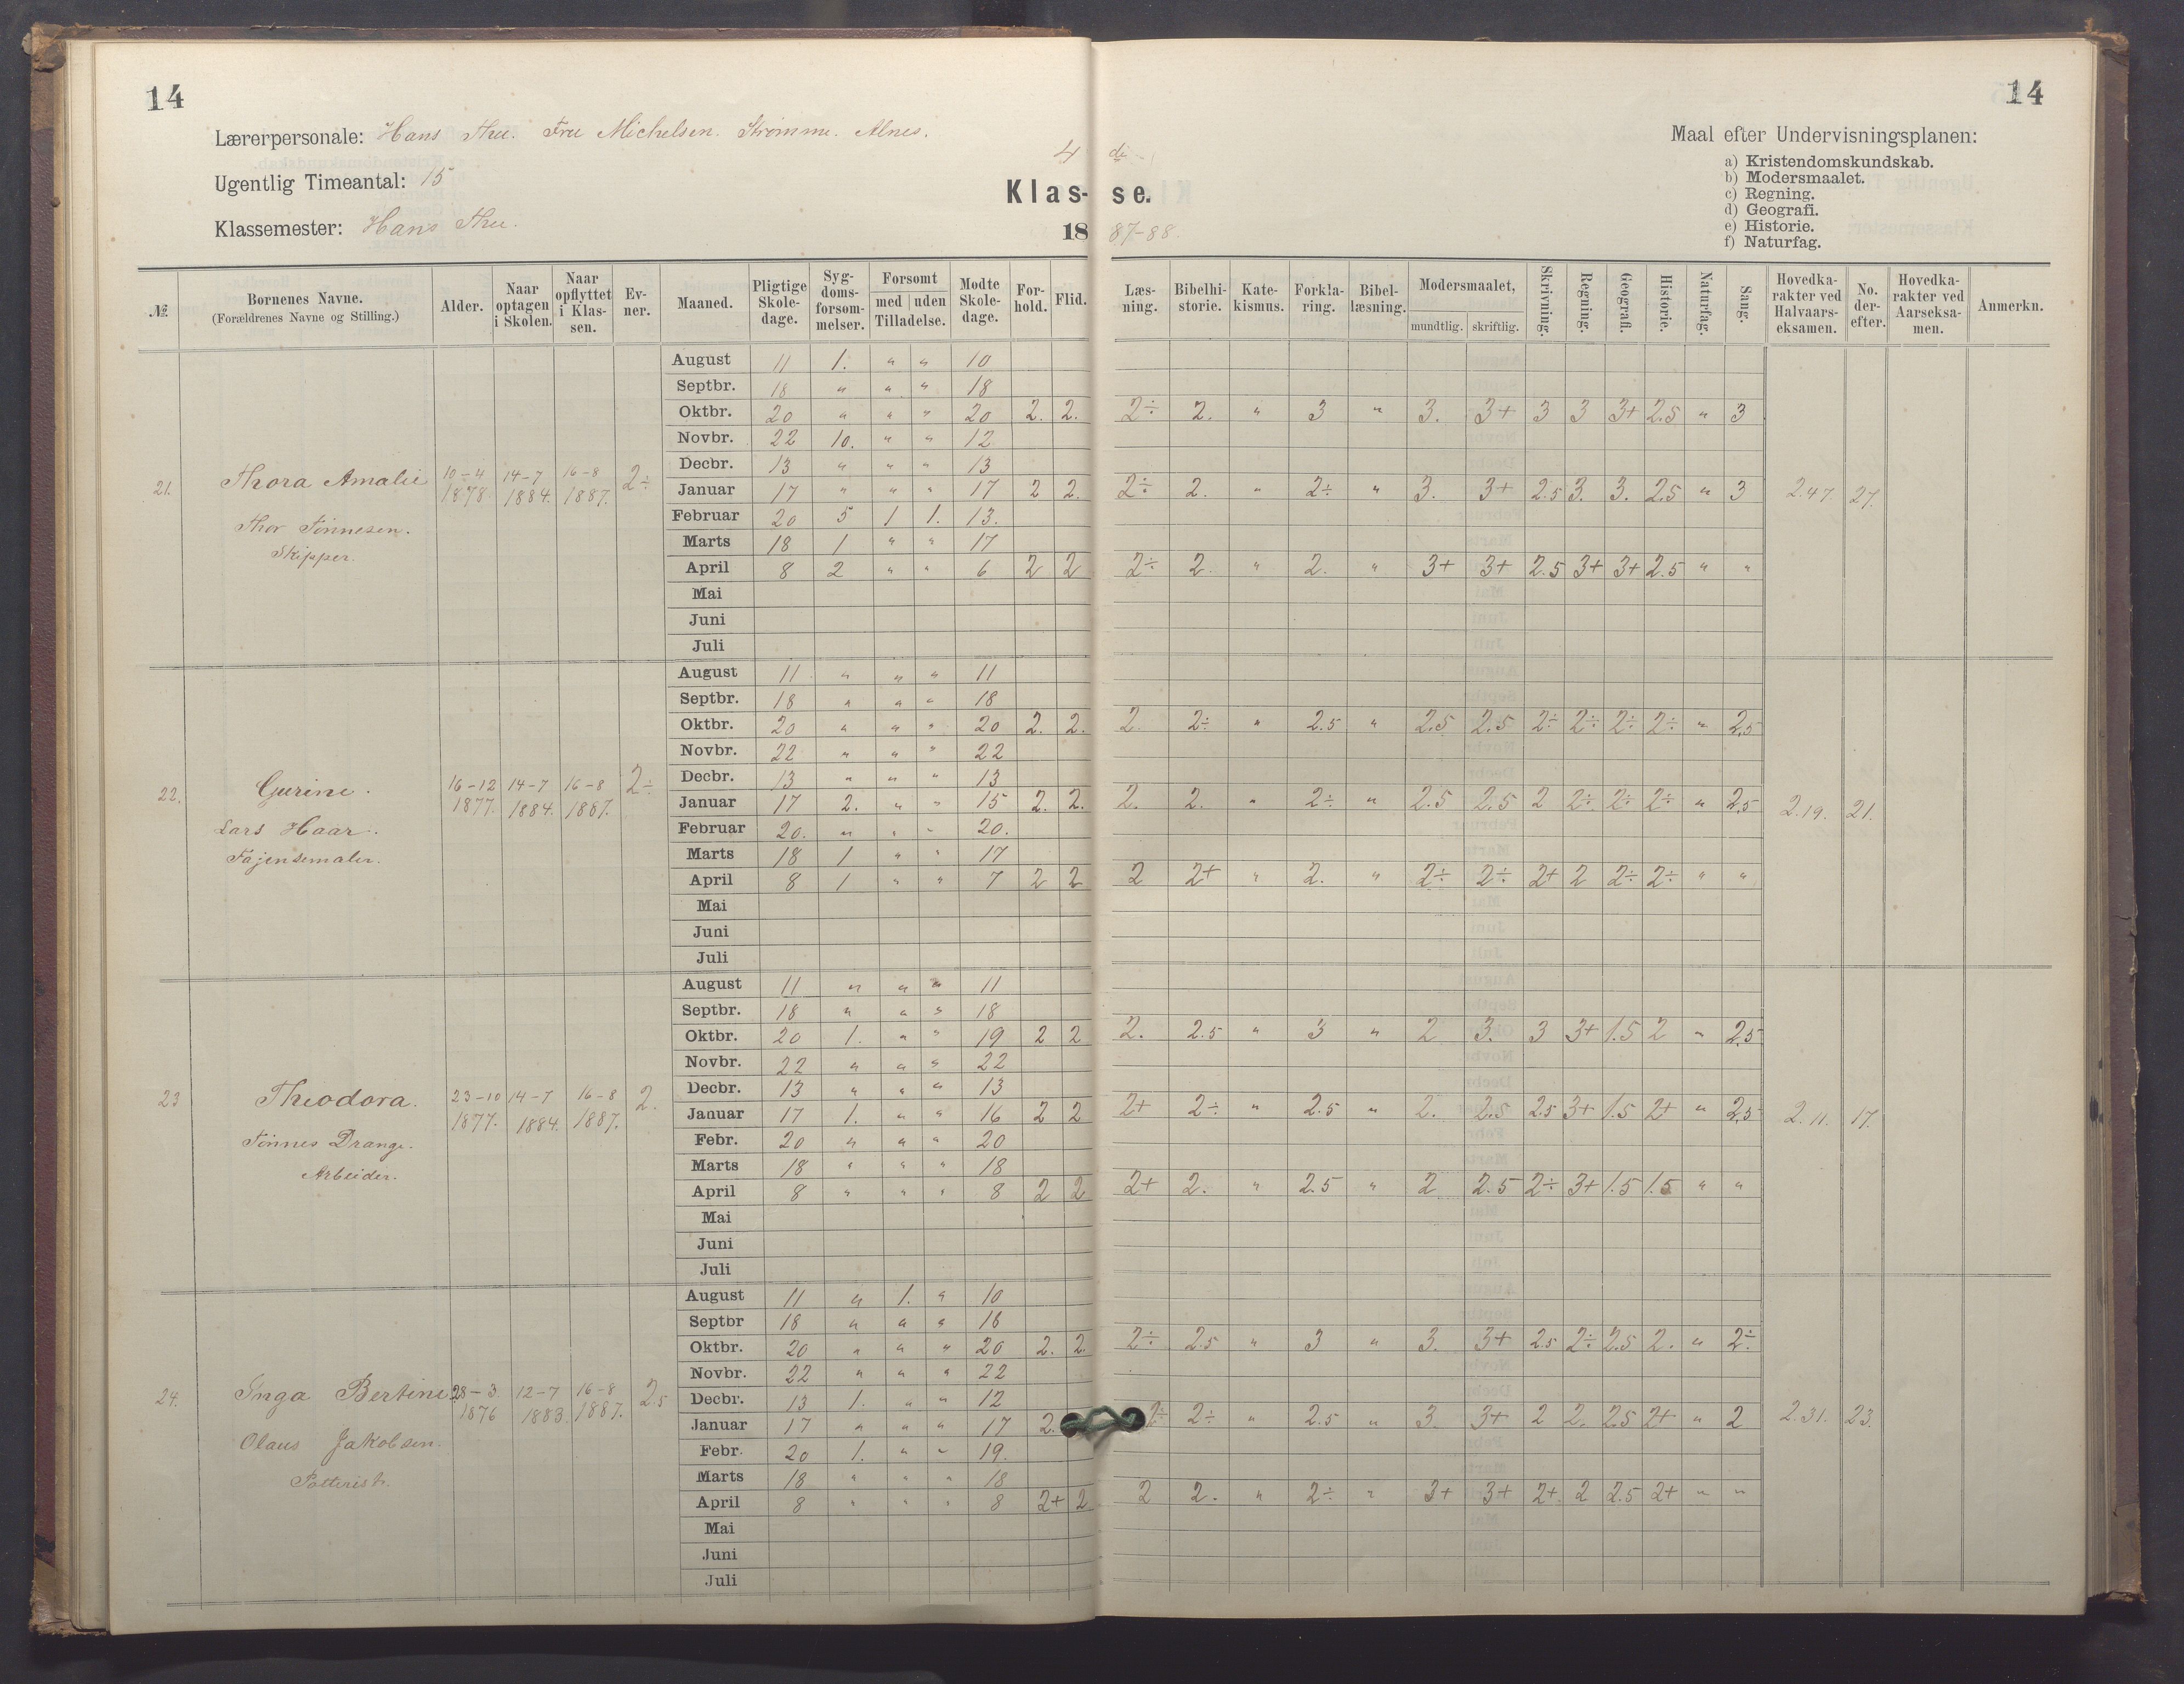 14
14
Lærerpersonale: Hans Thu. Fru Michelsen. Strømme. Alnes.
Ugentlig Timeantal: 15
Klassemester: Hans Thu.
4 de
Klas- se.
18 87-88.
Maal efter Undervisningsplanen:
a) Kristendomskundskab.
b) Modersmaalet.
c) Regning.
d) Geografi.
e) Historie.
f) Naturfag.
№ Bornenes Navne. (Forældrenes Navne og Stilling.) Alder. Naar optagen i Skolen. Naar opflyttet i Klas- sen. Ev- ner. Maaned. Pligtige Skole- dage. Syg- doms- forsom- melser. Forsomt med uden Tilladelse. Modte Skole- dage. For- hold. Flid. Læs- ning. Bibelhi- storie. Kate- kismus. Forkla- ring. Bibel- læsning. Modersmaalet, mundtlig. skriftlig. Skrivning. Regning. Geografi. Historie. Naturfag. Sang. Hovedka- rakter ved Halvaars- eksamen. No. der- efter. Hovedka- rakter ved Aarseksa- men. Anmerkn.
21. Thora Amalie 10-4 1878. 14-7 1884. 16-8 1887. 2÷ 2.47. 27.
Thor Tønnesen.
Skipper.
August 11 1. " " 10
Septbr. 18 " " " 18
Oktbr. 20 " " " 20 2. 2. 2÷ 2. " 3 " 3. 3+ 3 3 3+ 2.5 " 3
Novbr. 22 10. " " 12
Decbr. 13 " " " 13
Januar 17 " " " 17 2 2. 2÷ 2. " 2÷ " 3. 3+ 2.5 3. 3. 2.5 " 3
Februar 20 5 1 1. 13.
Marts 18 1 " " 17
April 8 2 " " 6 2 2 2÷ 2. " 2. " 3+ 3+ 2.5 3+ 3+ 2.5 " "
Mai
Juni
Juli
22. Gurine. 16-12 1877. 14-7 1884. 16-8 1887. 2÷ 2.19. 21.
Lars Haar.
Fajensemaler.
August 11 " " " 11
Septbr. 18 " " " 18
Oktbr. 20 " " " 20 2. 2. 2. 2÷ " 2.5 " 2.5 2.5 2÷ 2÷ 2÷ 2÷ " 2.5
Novbr. 22 " " " 22
Decbr. 13 " " " 13
Januar 17 2. " " 15 2. 2. 2. 2. " 2÷ " 2.5 2.5 2 2÷ 2÷ 2÷ " 2.5
Februar 20. " " " 20.
Marts 18 1 " " 17
April 8 1 " " 7 2 2 2 2+ " 2. " 2÷ 2÷ 2+ 2 2÷ 2÷ " "
Mai
Juni
Juli
23 Theodora. 23-10 1877. 14-7 1884. 16-8 1887. 2. 2.11. 17.
Tønnes Drange.
Arbeider.
August 11 " " " 11
Septbr. 18 " " " 18
Oktbr. 20 1. " " 19 2 2 2. 2.5 " 3 " 2 3. 3 3+ 1.5 2 " 2.5
Novbr. 22 " " " 22
Decbr. 13 " " " 13
Januar 17 1. " " 16 2 2 2+ 2÷ " 2.5 " 2. 2.5 2.5 3+ 1.5 2+ " 2.5
Febr. 20 " " " 20
Marts 18 " " " 18
April 8 " " " 8 2 2 2+ 2. " 2.5 " 2 2.5 2÷ 3+ 1.5 1.5 " "
Mai
Juni
Juli
24. Inga Bertine 28-3 1876 12-7 1883. 16-8 1887. 2.5 2.31. 23.
Olaus Jakobsen.
Potterist.
August 11 " 1. " 10
Septbr 18 " " " 18
Oktbr. 20 " " " 20 2. 2. 2÷ 2.5 " 3 " 3. 3+ 2.5 2÷ 2.5 2. " 2÷
Novbr. 22 " " " 22
Decbr. 13 1. " " 12
Januar 17 " " " 17 2. 2÷ 2÷ " 2.5 " 3. 3+ 2 2. 2.5 2+ " 2
Febr. 20 1. " " 19.
Marts 18 " " " 18
April 8 " " " 8 2+ 2 2 2. " 2÷ " 3+ 3+ 2+ 2 2.5 2+ " "
Mai
Juni
Juli